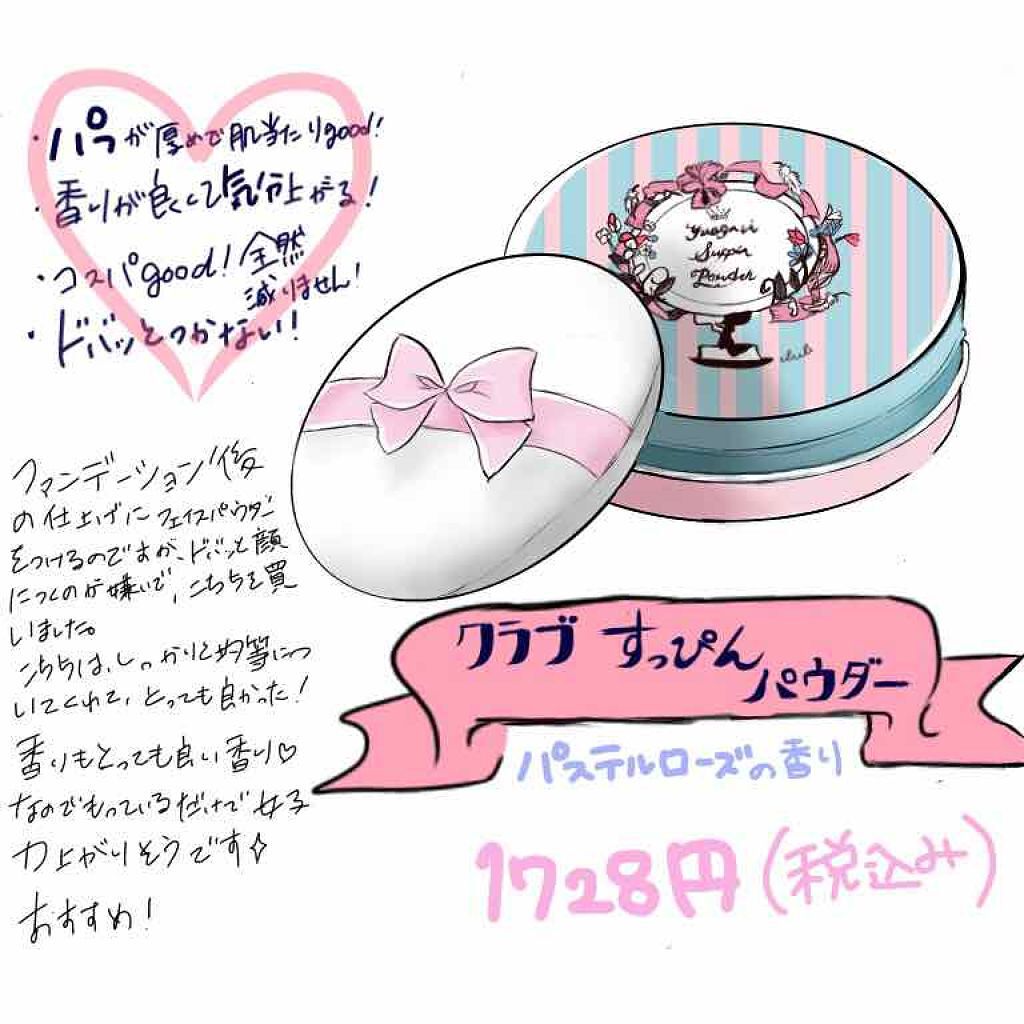 ・パフが厚めで肌当たりgood!
・香りが良くて気分上がる!
・コスパgood!全然
減りません!
・ドバッとつかない!
Yuagari
Suppin
Powder
club
ファンデーション後
の仕上げにフェイスパウダー
をつけるのですが、ドバッと顔
につくのが嫌いで、こちらを買
いました。
こちらは、しっかりと均等につ
いてくれて、とっても良かった!
香りもとっても良い香り♡
なのでもっているだけで女子
力上がりそうです☆
おすすめ!
クラブ すっぴん
パウダー
パステルローズの香り
1728円(税込み)